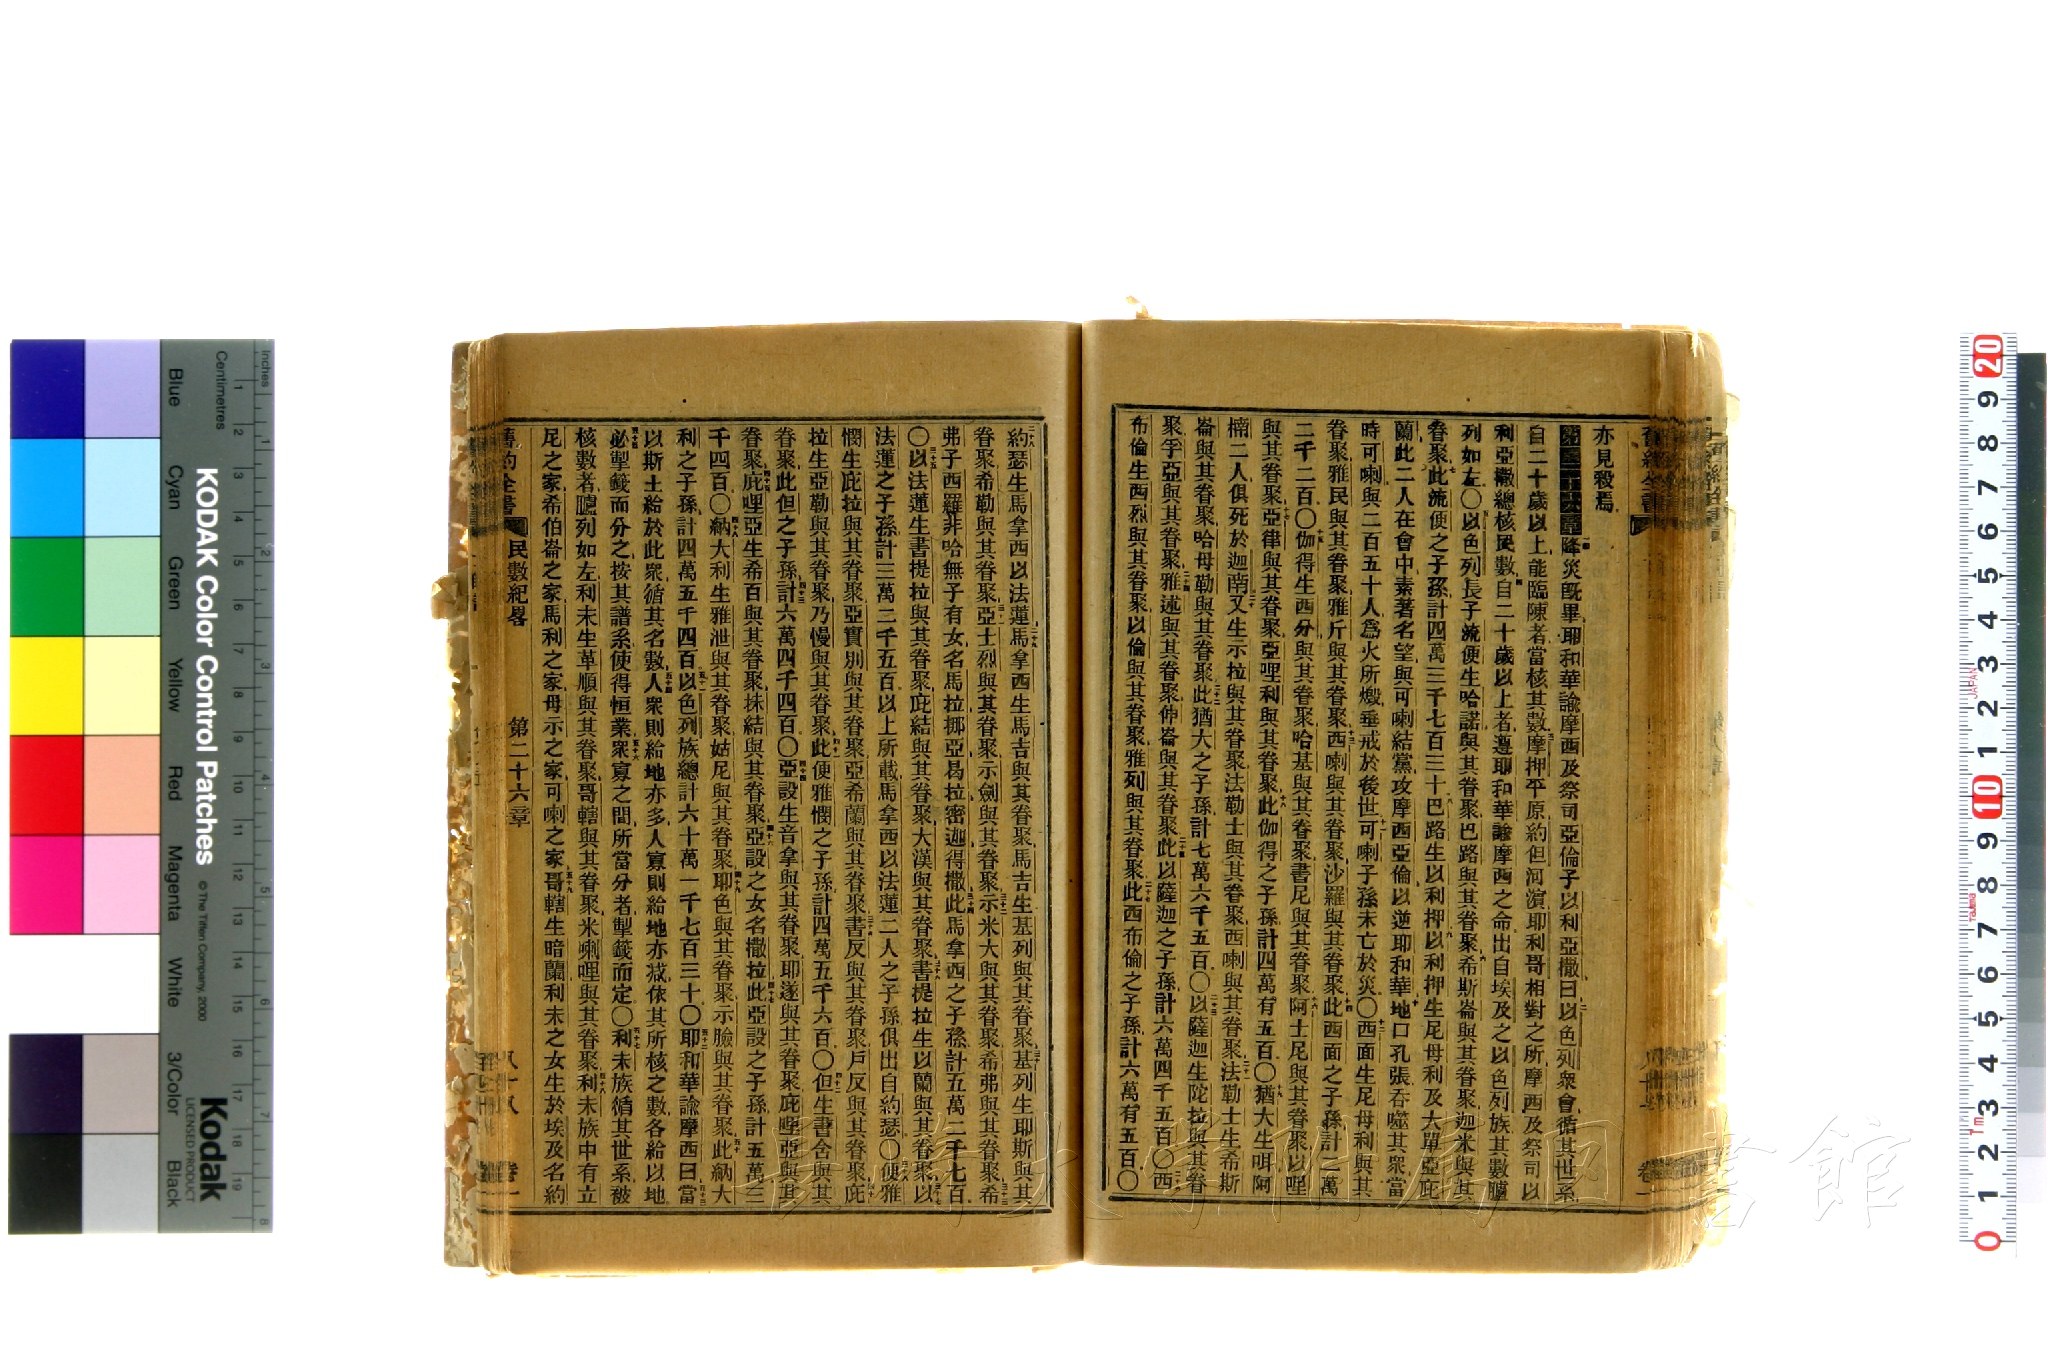 亦見殺焉
降災旣畢耶和華諭摩西及祭司亞倫子以利亞撒曰以色列衆會循其世系
自二十歲以上能臨陳者當核其數摩押平原約但河濱耶利哥相對之所摩西及祭司以
利亞撒總核民數自二十歲以上者遵耶和華諭摩西之命出自埃及之以色列族其數臚
列如左〇以色列長子流便生哈諾與其眷聚巴路與其眷聚希斯崙與其眷聚迦米與其
眷聚此流便之子孫計四萬三千七百三十巴路生以利押以利押生尼母利及大單亞庇
蘭此二人在會中素著名望與可喇結黨攻摩西亞倫以逆耶和華地口孔張吞噬其衆當
時可喇與二百五十人爲火所燬垂戒於後世可喇子孫未亡於災〇西面生尼母利與其
眷聚雅民與其眷聚雅斤與其眷聚西喇與其眷聚沙羅與其眷聚此西面之子孫計二萬
二千二百〇伽得生西分與其眷聚哈基與其眷聚書尼與其眷聚阿士尼與其眷聚以哩
與其眷聚亞律與其眷聚亞哩利與其眷聚此伽得之子孫計四萬有五百〇猶大生咡阿
楠二人俱死於迦南又生示拉與其眷聚法勒士與其眷聚西喇與其眷聚法勒士生希斯
崙與其眷聚哈母勒與其眷聚此猶大之子孫計七萬六千五百〇以薩迦生陀拉與其眷
聚孚亞與其眷聚雅述與其眷聚伸崙與其眷聚此以薩迦之子孫計六萬四千五百〇西
布倫生西烈與其眷聚以倫與其眷聚雅列與其眷聚此西布倫之子孫計六萬有五百〇
約瑟生馬拿西以法蓮馬拿西生馬吉與其眷聚馬吉生基列與其眷聚基列生耶斯與其
眷聚希勒與其眷聚亞士烈與其眷聚示劍與其眷聚示米大與其眷聚希弗與其眷聚希
弗子西羅非哈無子有女名馬拉挪亞曷拉密迦得撒此馬拿西之子孫計五萬二千七百
〇以法蓮生書提拉與其眷聚庇結與其眷聚大漢與其眷聚書提拉生以蘭與其眷聚以
法蓮之子孫計三萬二千五百以上所載馬拿西以法蓮二人之子孫俱出自約瑟〇便雅
憫生庇拉與其眷聚亞實別與其眷聚亞希蘭與其眷聚書反與其眷聚戶反與其眷聚庇
拉生亞勒與其眷聚乃慢與其眷聚此便雅憫之子孫計四萬五千六百〇但生書含與其
眷聚此但之子孫計六萬四千四百〇亞設生音拿與其眷聚耶遂與其眷聚庇哩亞與其
眷聚庇哩亞生希百與其眷聚抹結與其眷聚亞設之女名撒拉此亞設之子孫計五萬三
千四百〇納大利生雅泄與其眷聚姑尼與其眷聚耶色與其眷聚示臉與其眷聚此納大
利之子孫計四萬五千四百以色列族總計六十萬一千七百三十〇耶和華諭摩西曰當
以斯土給於此衆循其名數人衆則給地亦多人寡則給地亦減依其所核之數各給以地
必掣籤而分之按其譜系使得恒業衆寡之間所當分者掣籤而定〇利未族循其世系被
核數者臚列如左利未生革順與其眷聚哥轄與其眷聚米喇哩與其眷聚利未族中有立
尼之家希伯崙之家馬利之家母示之家可喇之家哥轄生暗蘭利未之女生於埃及名約
舊約全書 民數紀畧 第二十六章 八十八 卷一
KODAK Color Control Patches
© The Tiffen Company, 2000
Kodak
LICENSED PRODUCT
Inches
Centimetres
Blue
Cyan
Green
Yellow
Red
Magenta
White
3/Color
Black